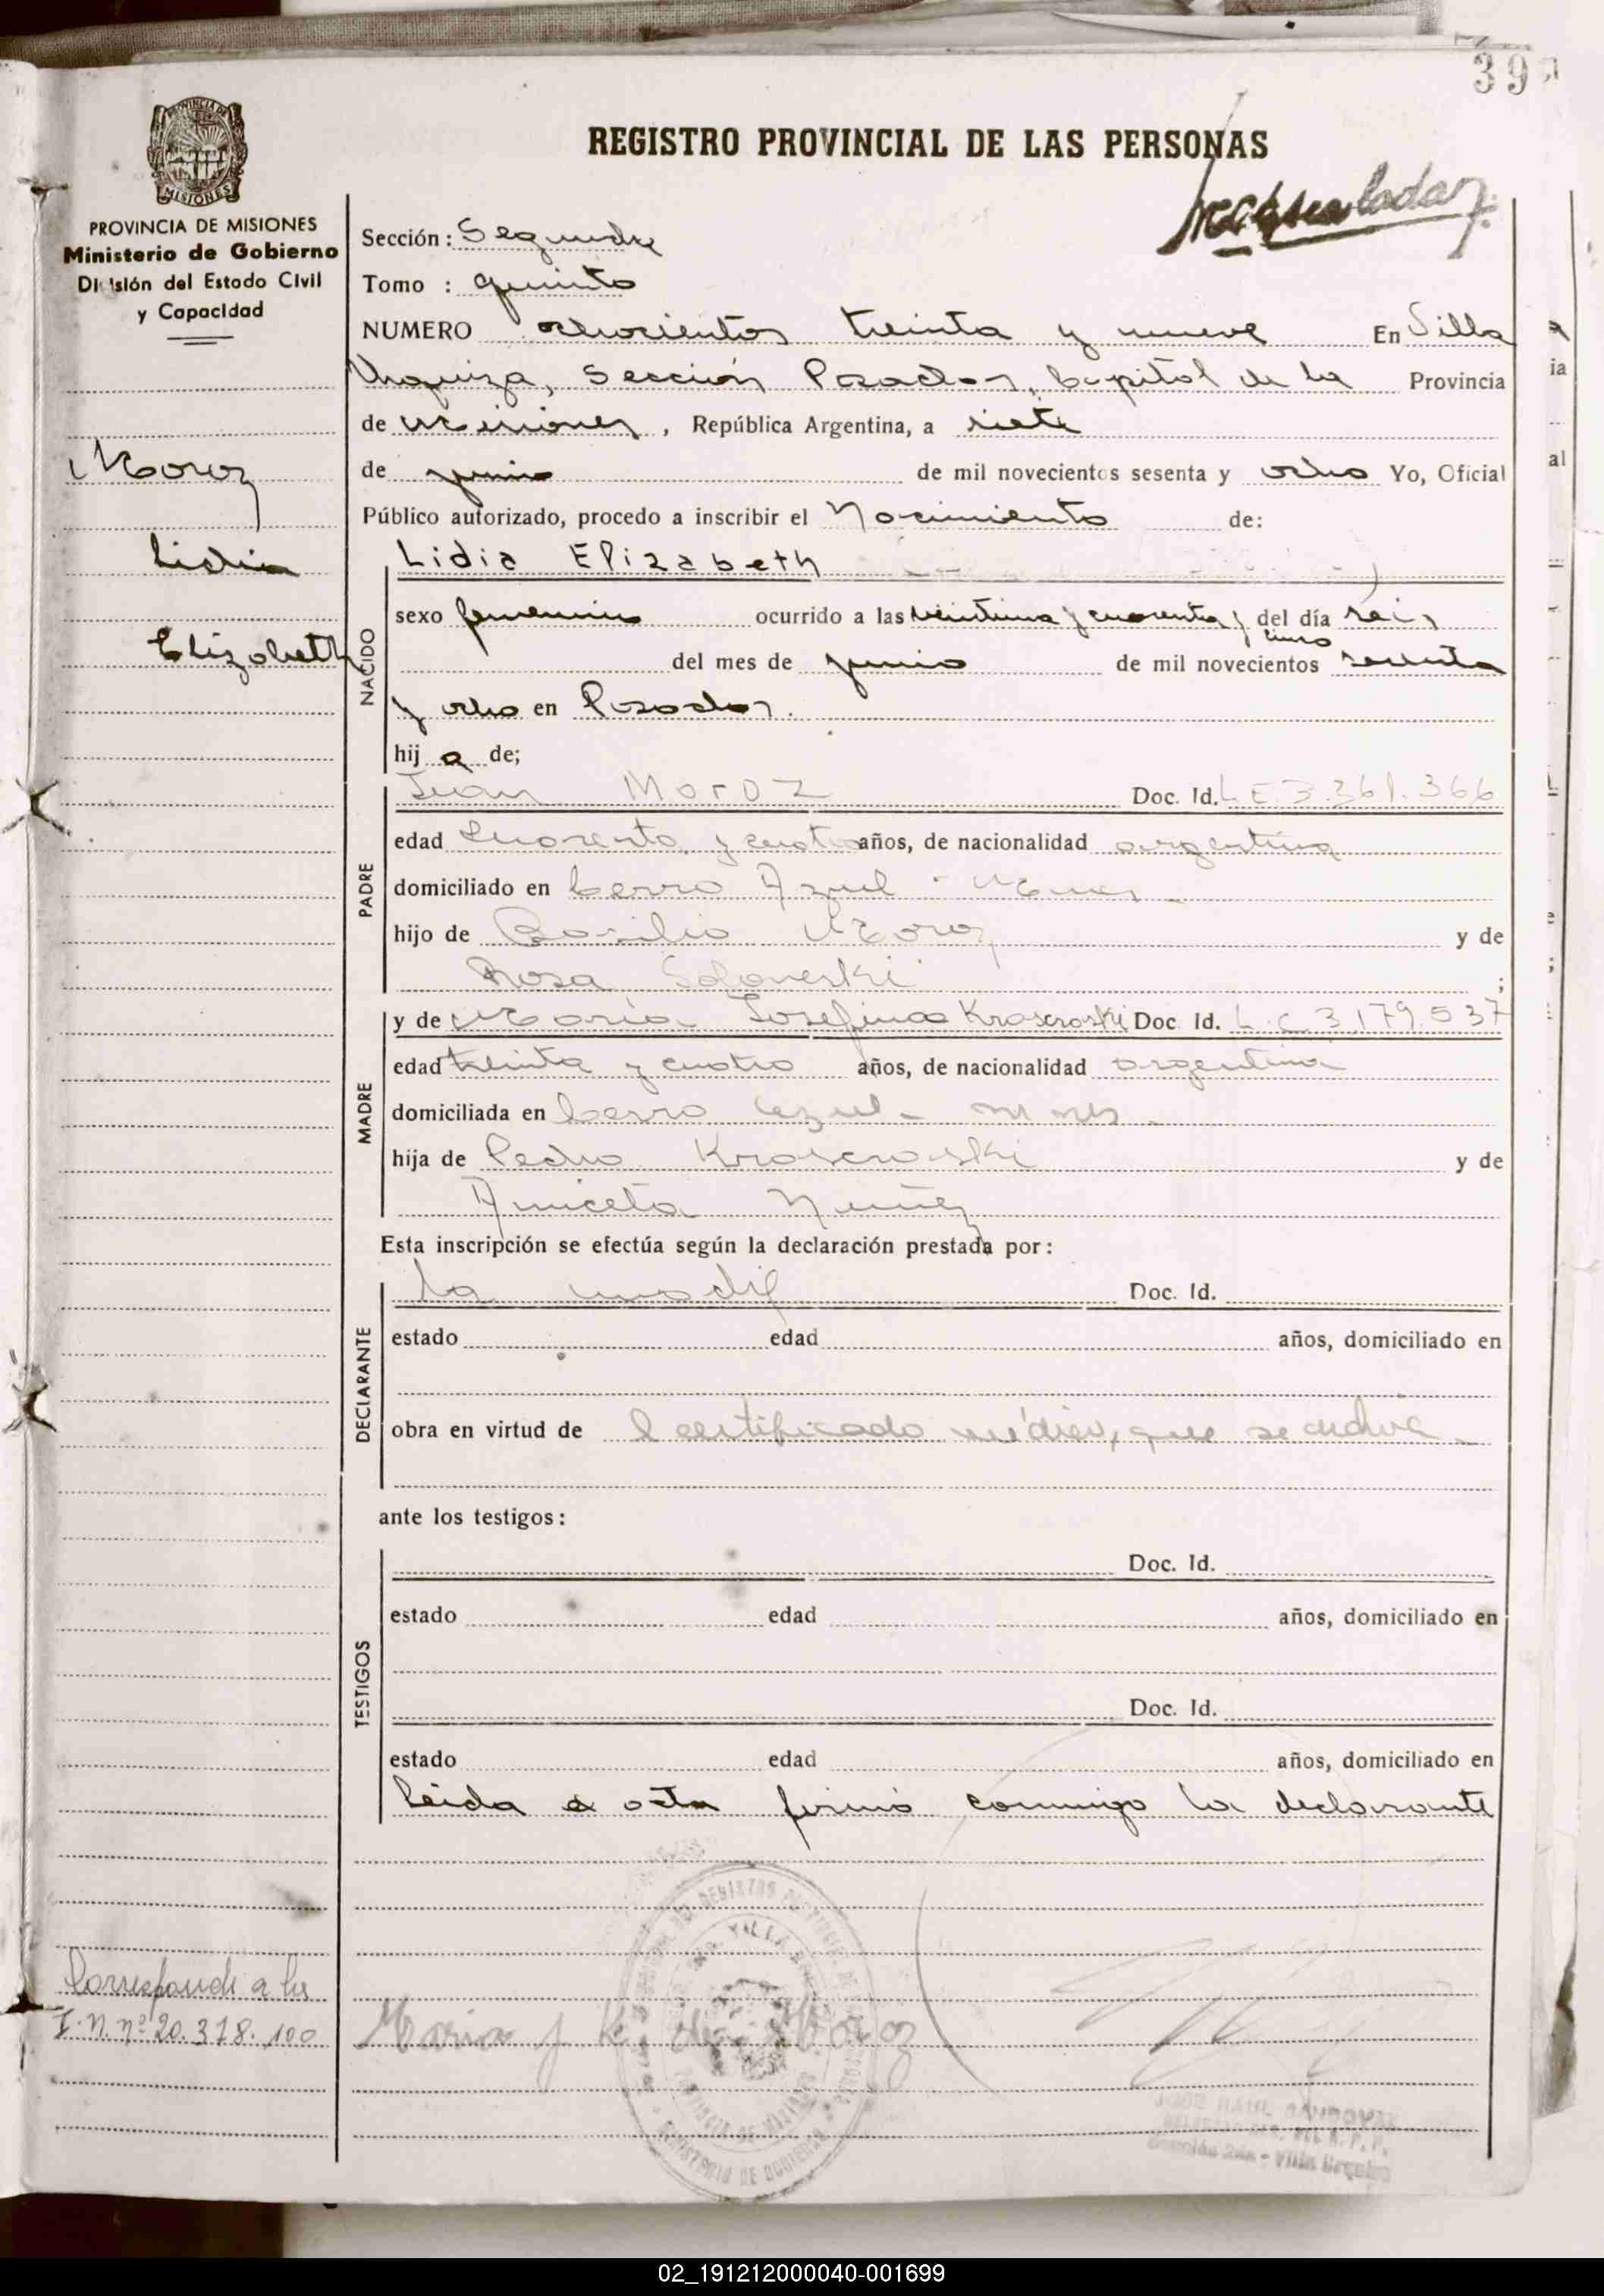 39
REGISTRO PROVINCIAL DE LAS PERSONAS
PROVINCIA DE MISIONES
Ministerio de Gobierno
División del Estado Civil
y Capacidad
Sección: Segunda
Tomo : quinto
NUMERO ochocientos treinta y nueve En Villa
Urquiza, Sección Posadas, Capital de la Provincia
de Misiones, República Argentina, a siete
de junio de mil novecientos sesenta y ocho Yo, Oficial
Público autorizado, procedo a inscribir el Nacimiento de:
Moroz
Lidia
Elizabeth
NACIDO
Lidia Elizabeth
sexo femenino ocurrido a las veintiuna y cuarenta y cinco del día seis
del mes de junio de mil novecientos sesenta
y ocho en Posadas.
hij a de;
PADRE
Juan Moroz Doc. Id. L.E. 3.361.366
edad Cuarenta y cuatro años, de nacionalidad argentina
domiciliado en Cerro Azul - Mnes
hijo de Basilio Moroz y de
Rosa ;
MADRE
y de Maria Josefina Doc. Id. L.C. 3.179.537
edad treinta y cuatro años, de nacionalidad argentina
domiciliada en Cerro Azul - Mnes
hija de Pedro y de
Aniceta Nuñez
Esta inscripción se efectúa según la declaración prestada por:
DECLARANTE
La madre Doc. Id.
estado edad años, domiciliado en
obra en virtud de l certificado médico, que se archiva
ante los testigos:
TESTIGOS
Doc. Id.
estado edad años, domiciliado en
Doc. Id.
estado edad años, domiciliado en
Leida el acta firmó conmigo la declarante
Corresponde a la
I.N. nº 20.378.100
Maria J K de Moroz
MINISTERIO DE GOBIERNO
02_191212000040-001699